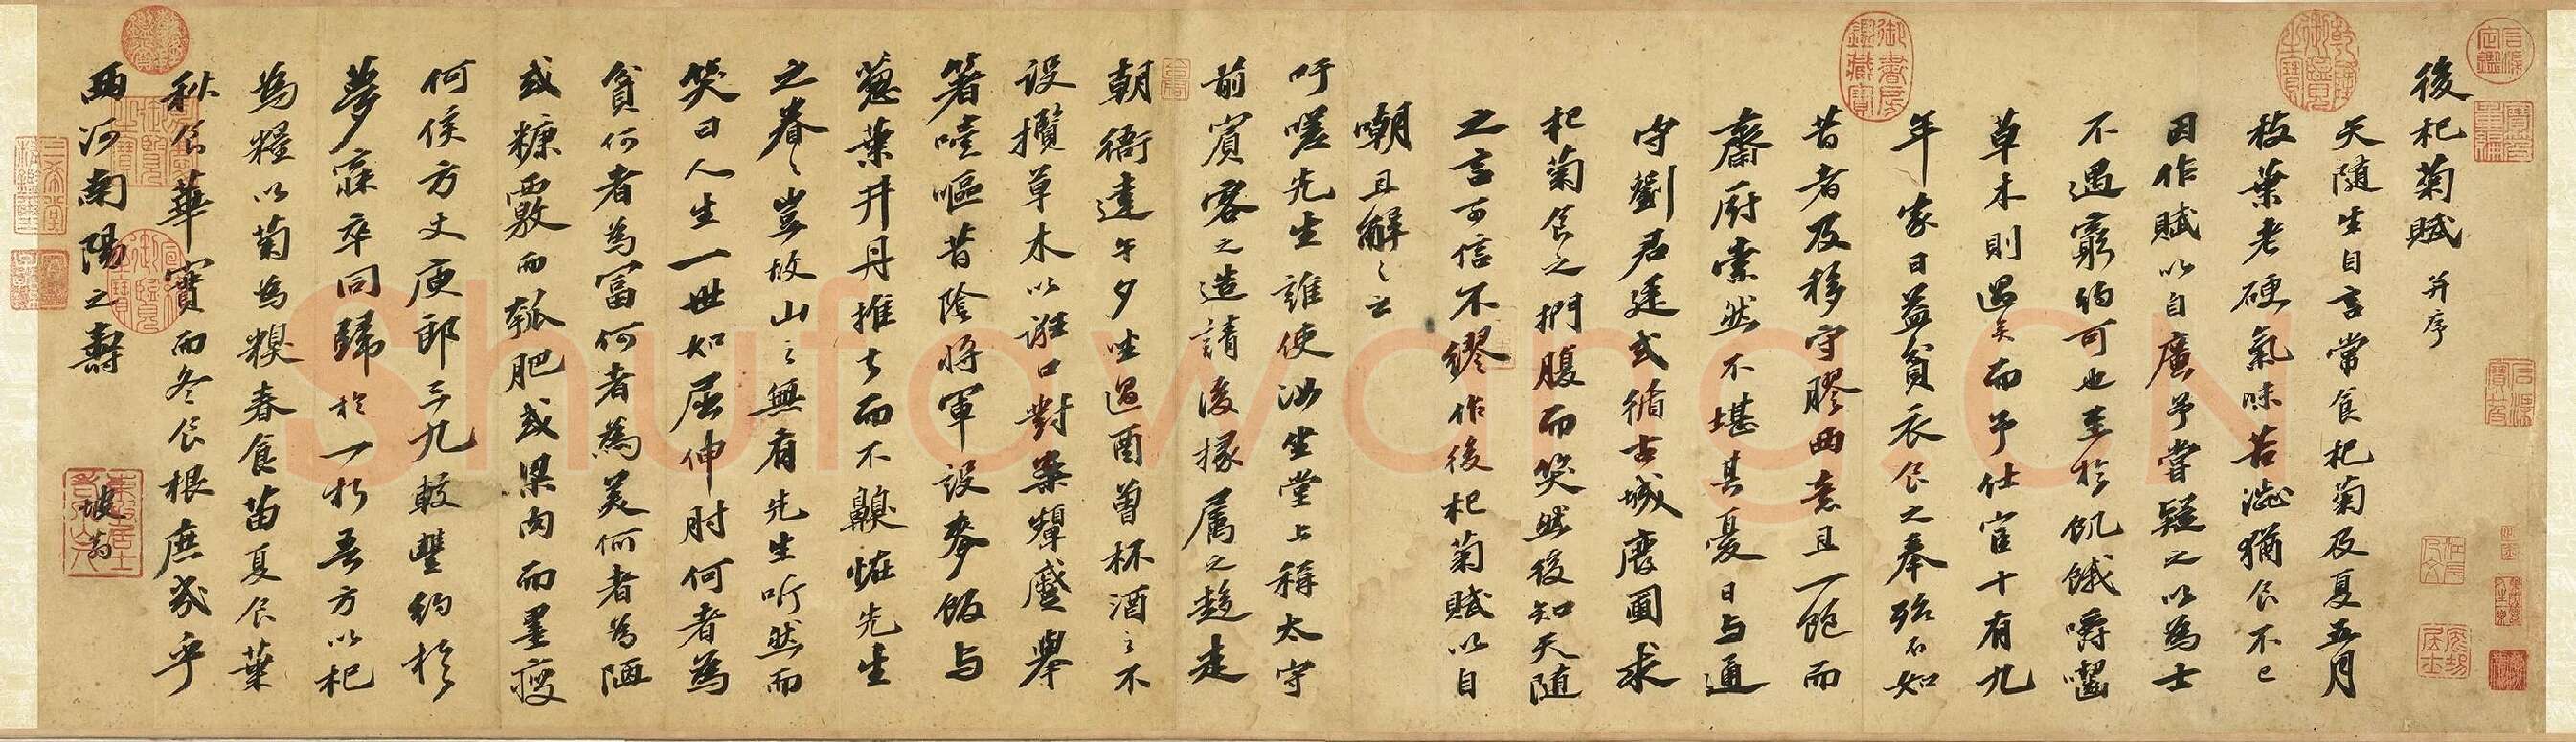 後杞菊賦 并序
天随生自言常食杞菊及夏五月
枝葉老硬氣味苦澁猶食不已
因作賦以自廣予嘗疑之以為士
不遇窮約可也至於飢餓嚼齧
草木則過矣而予仕宦十有九
年家日益貧衣食之奉殆不如
昔者及移守膠西意且一飽而
齋厨索然不堪其憂日与通
守劉君廷式循古城廢圃求
杞菊食之捫腹而笑然後知天随
之言可信不繆作後杞菊賦以自
嘲且解之云
吁嗟先生誰使汝坐堂上稱太守
前賓客之造請後掾属之趍走
朝衙達午夕坐過酉曽杯酒之不
設攬草木以誑口對案顰蹙舉
箸噎嘔昔陰將軍設麥飯与
葱葉井丹推去而不齅恠先生
之眷々豈故山之無有先生听然而
笑曰人生一世如屈伸肘何者為
貧何者為富何者為美何者為陋
或糠覈而瓠肥或梁肉而墨瘦
何侯方丈庾郎三九較豐約於
夢寐卒同歸於一朽吾方以杞
為糧以菊為糗春食苗夏食葉
秋食華實而冬食根庶幾乎
西河南陽之壽
坡翁
Shufawang.CN